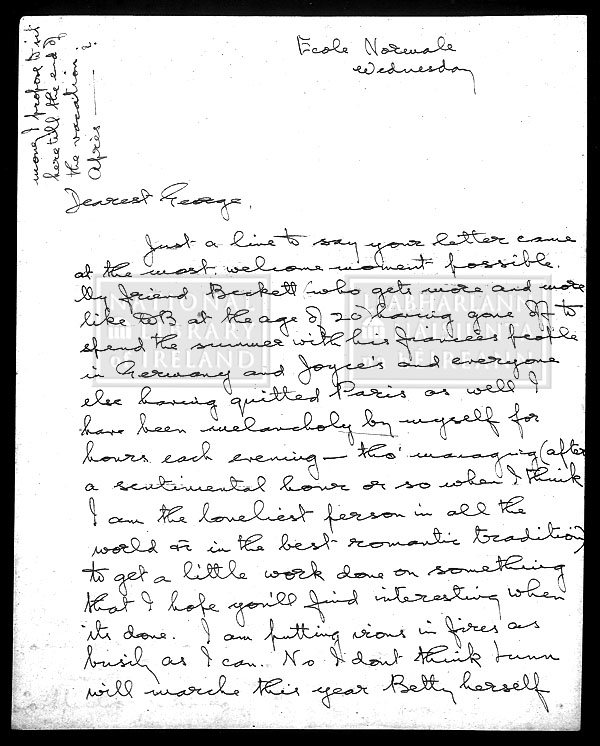 Ecole Normale
Wednesday
money I propose to sit
here till the end of
the vacation.
Après — ?
Dearest George,
Just a line to say your letter came
at the most welcome moment possible.
My friend Beckett (who gets more and more
like at the age of 20 having gone off to
spend the summer with his francées people
in Germany and Joyce's and everyone
else having quitted Paris as well I
have been melancholy by myself for
hours each evening — tho' managing (after
a sentimental hour or so when I think
I am the loneliest person in all the
world &c in the best romantic tradition)
to get a little work done on something
that I hope you'll find interesting when
its done. I am putting irons in fires as
busily as I can. No I dont think Lunn
will marche this year Betty herself
NATIONAL
LIBRARY
of IRELAND
LEABHARLANN
NÁISIÚNTA
na hÉIREANN